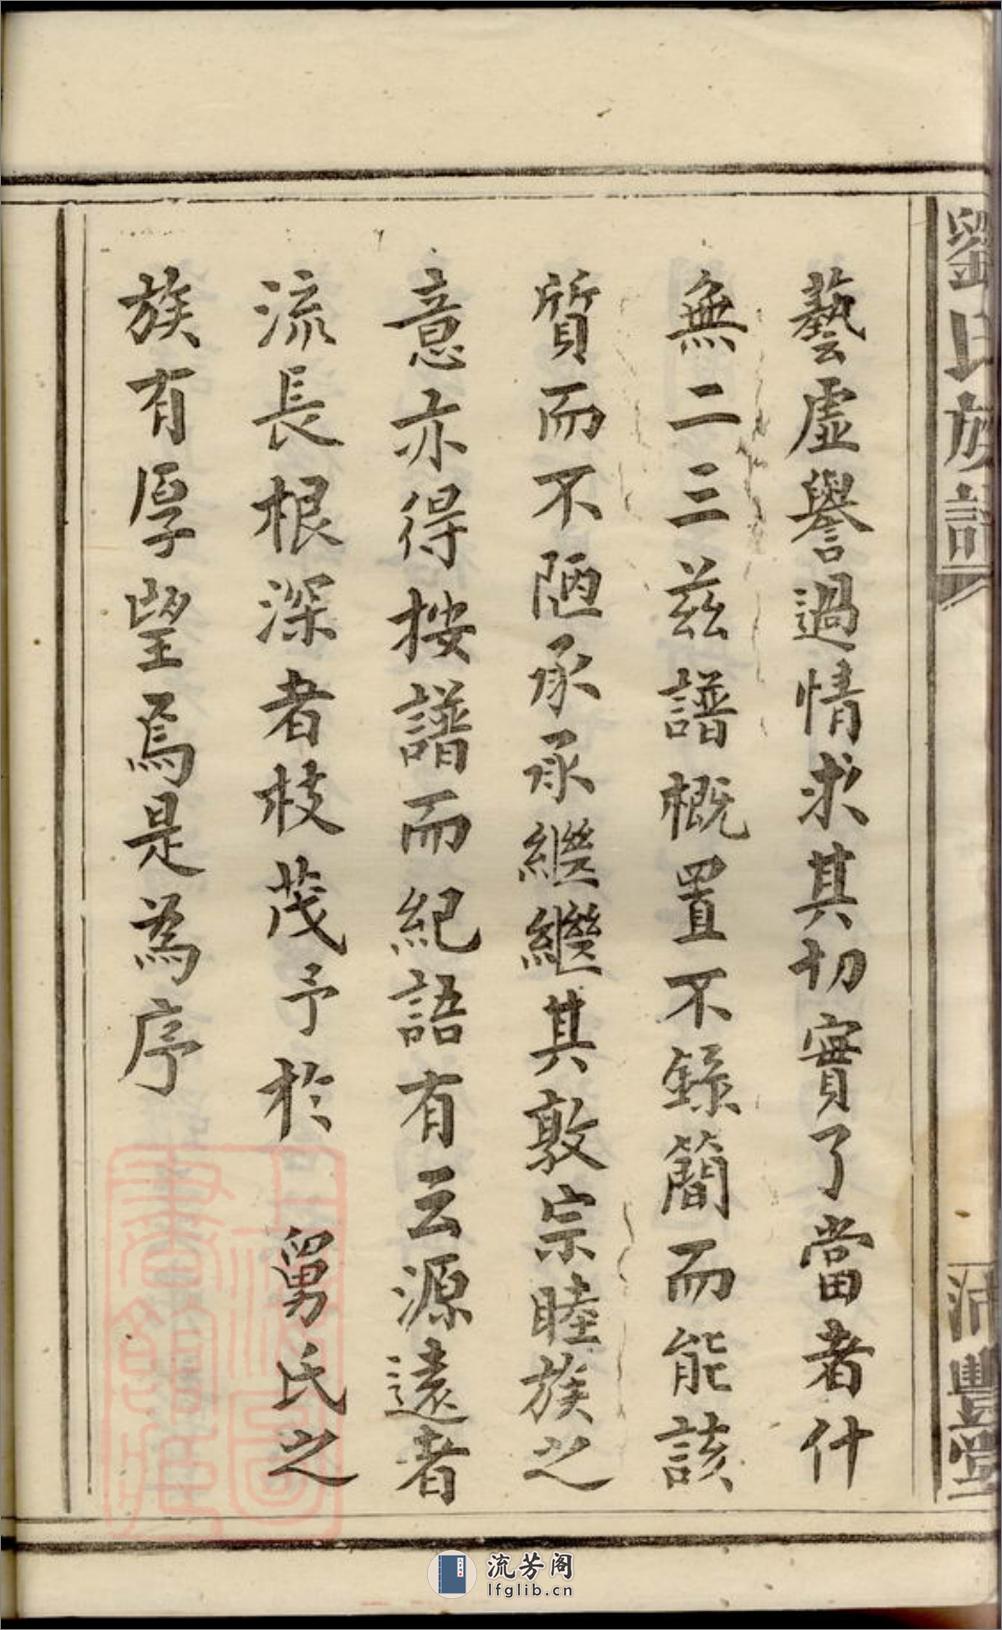 劉氏族譜
沛豐堂
藝虛譽過情求其切實了當者什
無二三茲譜概置不錄簡而能該
質而不陋承承繼繼其敦宗睦族之
意亦得按譜而紀語有云源遠者
流長根深者枝茂予於 舅氏之
族有厚望焉是為序
上海圖書館藏
流芳阁
lfglib.cn